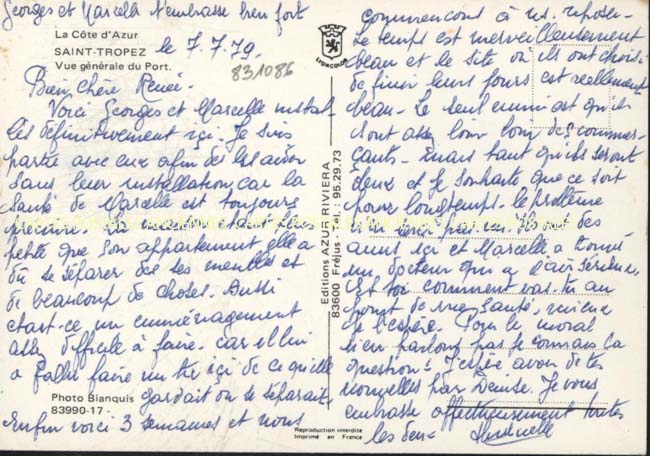 Georges et Marcelle t'embrasse bien fort
La Côte d'Azur
SAINT-TROPEZ
Vue générale du Port.
le 7.7.79.
831086
LYONCOLOR
Bien chère Renée.
Voici Georges et Marcelle instal-
lés définitivement içi. Je suis
partie avec eux afin de les aider
dans leur installation, car la
santé de Marcelle est toujours
précaire. La maison étant plus
petite que son appartement elle a
dû se séparer de ses meubles et
de beaucoup de choses. Aussi
était-ce un emménagement
assez difficile à faire. car il lui
a fallu faire un tri içi de ce qu'elle
gardait ou se séparait.
Enfin voici 3 semaines et nous
commencons à ns. reposer
le temps est merveilleusement
beau et le site où ils ont choisi
de finir leurs jours est reellement
beau. Le seul ennui est qu'ils
sont assez loin des commer-
çants. mais tant qu'ils seront
deux et je souhaite que ce soit
pour longtemps. le problème
n'en sera pas un. Ils ont des
amis içi et Marcelle a trouvé
un docteur qui a l'air sérieux.
Et toi comment vas-tu au
point de vue santé, mieux
je l'espère. Pour le moral
n'en parlons pas je connais la
question! J'espère avoir de tes
nouvelles par Denise. Je vous
embrasse affectueusement toutes
les deux
Editions AZUR RIVIERA
83600 Fréjus - Tél. : 95.29.73
Photo Bianquis
83990-17 -
Reproduction interdite
Imprimé en France